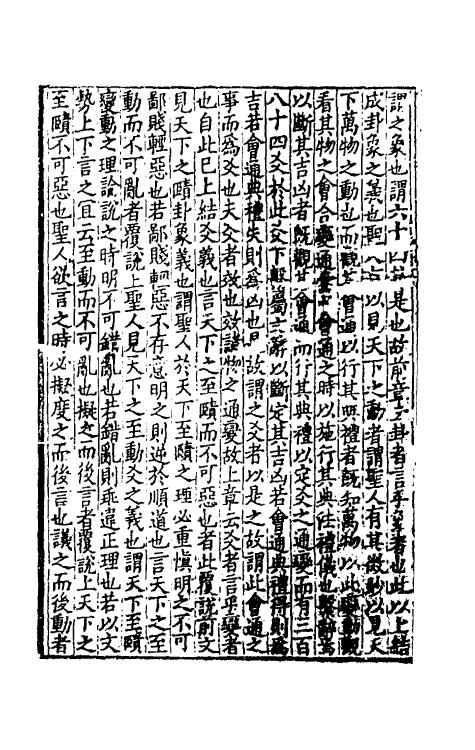 謂之象也謂六十四卦是也故前章云卦者言乎象者也此以上結
成卦象之義也聖人有以見天下之動者謂聖人有其微妙以見天
下萬物之動也而觀其會通以行其典禮者既知萬物以此變動觀
看其物之會合變通當會通之時以施行其典法禮儀也繫辭焉
以斷其吉凶者既觀其會通而行其典禮以定爻之通變而有三百
八十四爻於此爻下繫屬文辭以斷定其吉凶若會通典禮得則爲
吉若會通典禮失則爲凶也是故謂之爻者以是之故謂此會通之
事而爲爻也夫爻者效也效諸物之通變故上章云爻者言乎變者
也自此已上結爻義也言天下之至賾而不可惡也者此覆說前文
見天下之賾卦象義也謂聖人於天下至賾之理必重慎明之不可
鄙賤輕惡也若鄙賤輕惡不存意明之則逆於順道也言天下之至
動而不可亂者覆說上聖人見天下之至動爻之義也謂天下至賾
變動之理論說之時明不可錯亂也若錯亂則乖違正理也若以文
勢上下言之宜云至動而不可亂也擬之而後言者覆說上天下之
至賾不可惡也聖人欲言之時必擬度之而後言也議之而後動者